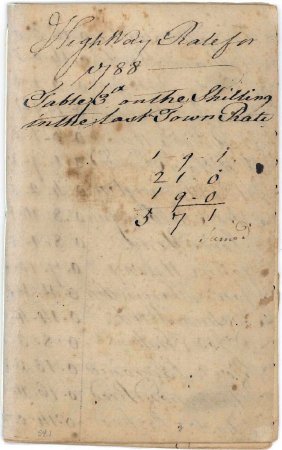 HighWay Rate for
1788
Table 3d on the Shilling
in the last Town Rate
1 9 1
2 1 0
1 9 0
5 7 1